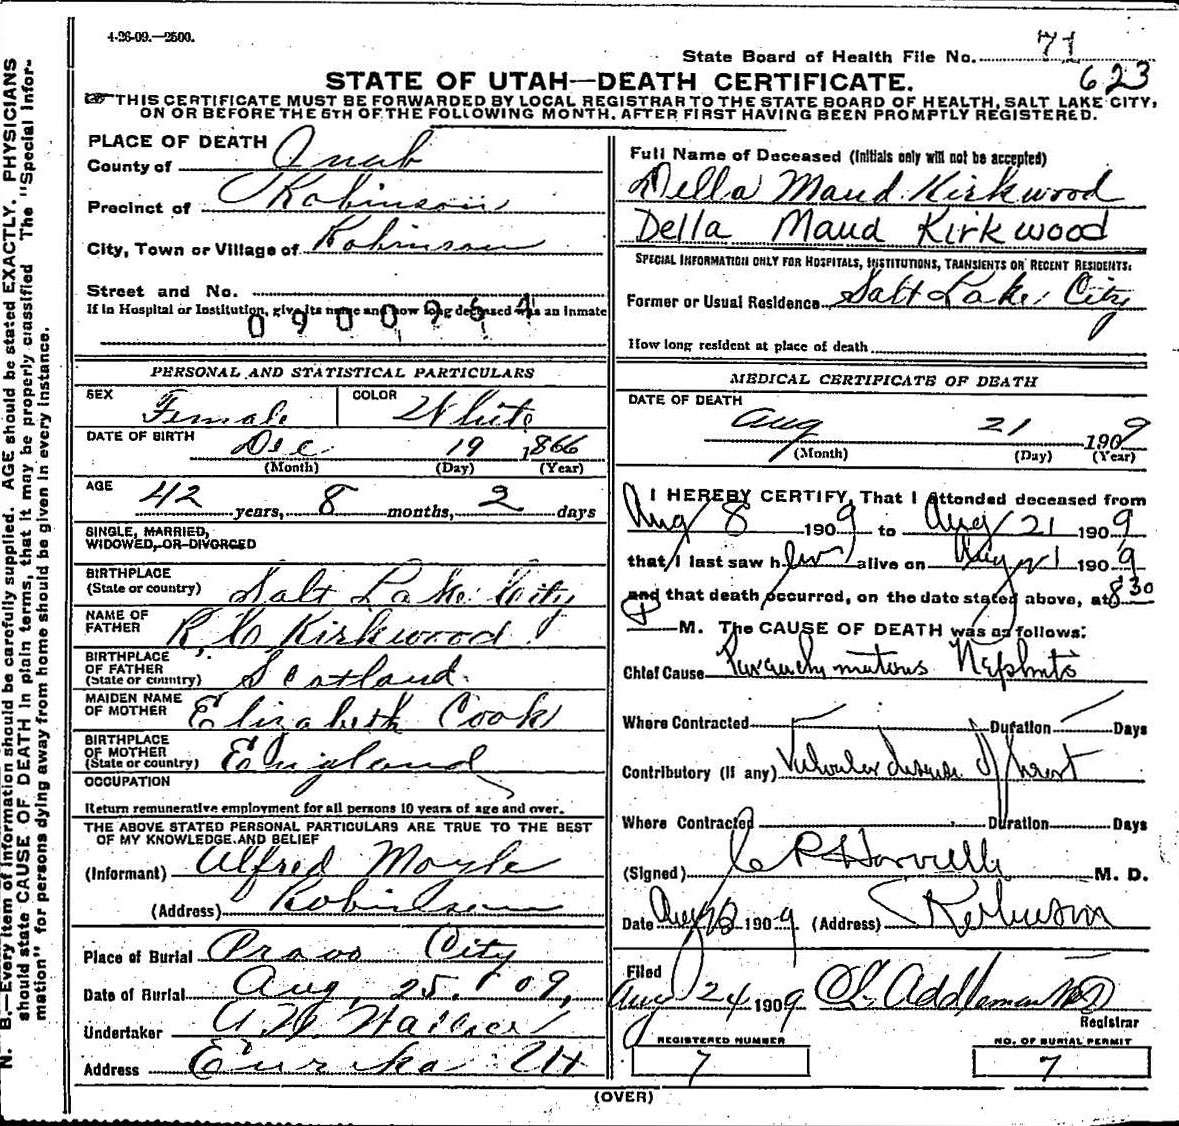 4-26-09.—2500.
State Board of Health File No. 71
623
STATE OF UTAH—DEATH CERTIFICATE.
THIS CERTIFICATE MUST BE FORWARDED BY LOCAL REGISTRAR TO THE STATE BOARD OF HEALTH, SALT LAKE CITY,
ON OR BEFORE THE 5TH OF THE FOLLOWING MONTH, AFTER FIRST HAVING BEEN PROMPTLY REGISTERED.
PLACE OF DEATH
County of Juab
Precinct of Robinson
City, Town or Village of Robinson
Street and No.
If in Hospital or Institution, give its name and how long deceased was an inmate
0900964
PERSONAL AND STATISTICAL PARTICULARS
SEX Female COLOR White
DATE OF BIRTH Dec 19 1866
(Month) (Day) (Year)
AGE 42 years, 8 months, 2 days
SINGLE, MARRIED,
WIDOWED, OR DIVORCED
BIRTHPLACE
(State or country) Salt Lake City
NAME OF
FATHER R. C Kirkwood
BIRTHPLACE
OF FATHER
(State or country) Scotland.
MAIDEN NAME
OF MOTHER Elizabeth Cook
BIRTHPLACE
OF MOTHER
(State or country) England
OCCUPATION
Return remunerative employment for all persons 10 years of age and over.
THE ABOVE STATED PERSONAL PARTICULARS ARE TRUE TO THE BEST
OF MY KNOWLEDGE AND BELIEF
(Informant) Alfred Moyle
(Address) Robinson
Place of Burial Provo City
Date of Burial Aug, 25. 09,
Undertaker Wallace
Address Eureka Ut
Full Name of Deceased (Initials only will not be accepted)
Della Maud Kirkwood
Della Maud Kirkwood
SPECIAL INFORMATION ONLY FOR HOSPITALS, INSTITUTIONS, TRANSIENTS OR RECENT RESIDENTS:
Former or Usual Residence Salt Lake City
How long resident at place of death
MEDICAL CERTIFICATE OF DEATH
DATE OF DEATH
Aug 21 1909
(Month) (Day) (Year)
I HEREBY CERTIFY, That I attended deceased from
Aug 8 1909 to Aug 21 1909
that I last saw her alive on Aug 21 1909
and that death occurred, on the date stated above, at 8 30
P M. The CAUSE OF DEATH was as follows:
Chief Cause Parenchymatous Nephritis
Where Contracted Duration Days
Contributory (if any) Valvular disease of heart
Where Contracted Duration Days
(Signed) M. D.
Date Aug 1909 (Address) Robinson
Filed
Aug 24 1909 Addleman MD
Registrar
REGISTERED NUMBER
7
NO. OF BURIAL PERMIT
7
(OVER)
N. B.—Every item of information should be carefully supplied. AGE should be stated EXACTLY. PHYSICIANS
should state CAUSE OF DEATH in plain terms, that it may be properly classified. The "Special Infor-
mation" for persons dying away from home should be given in every instance.